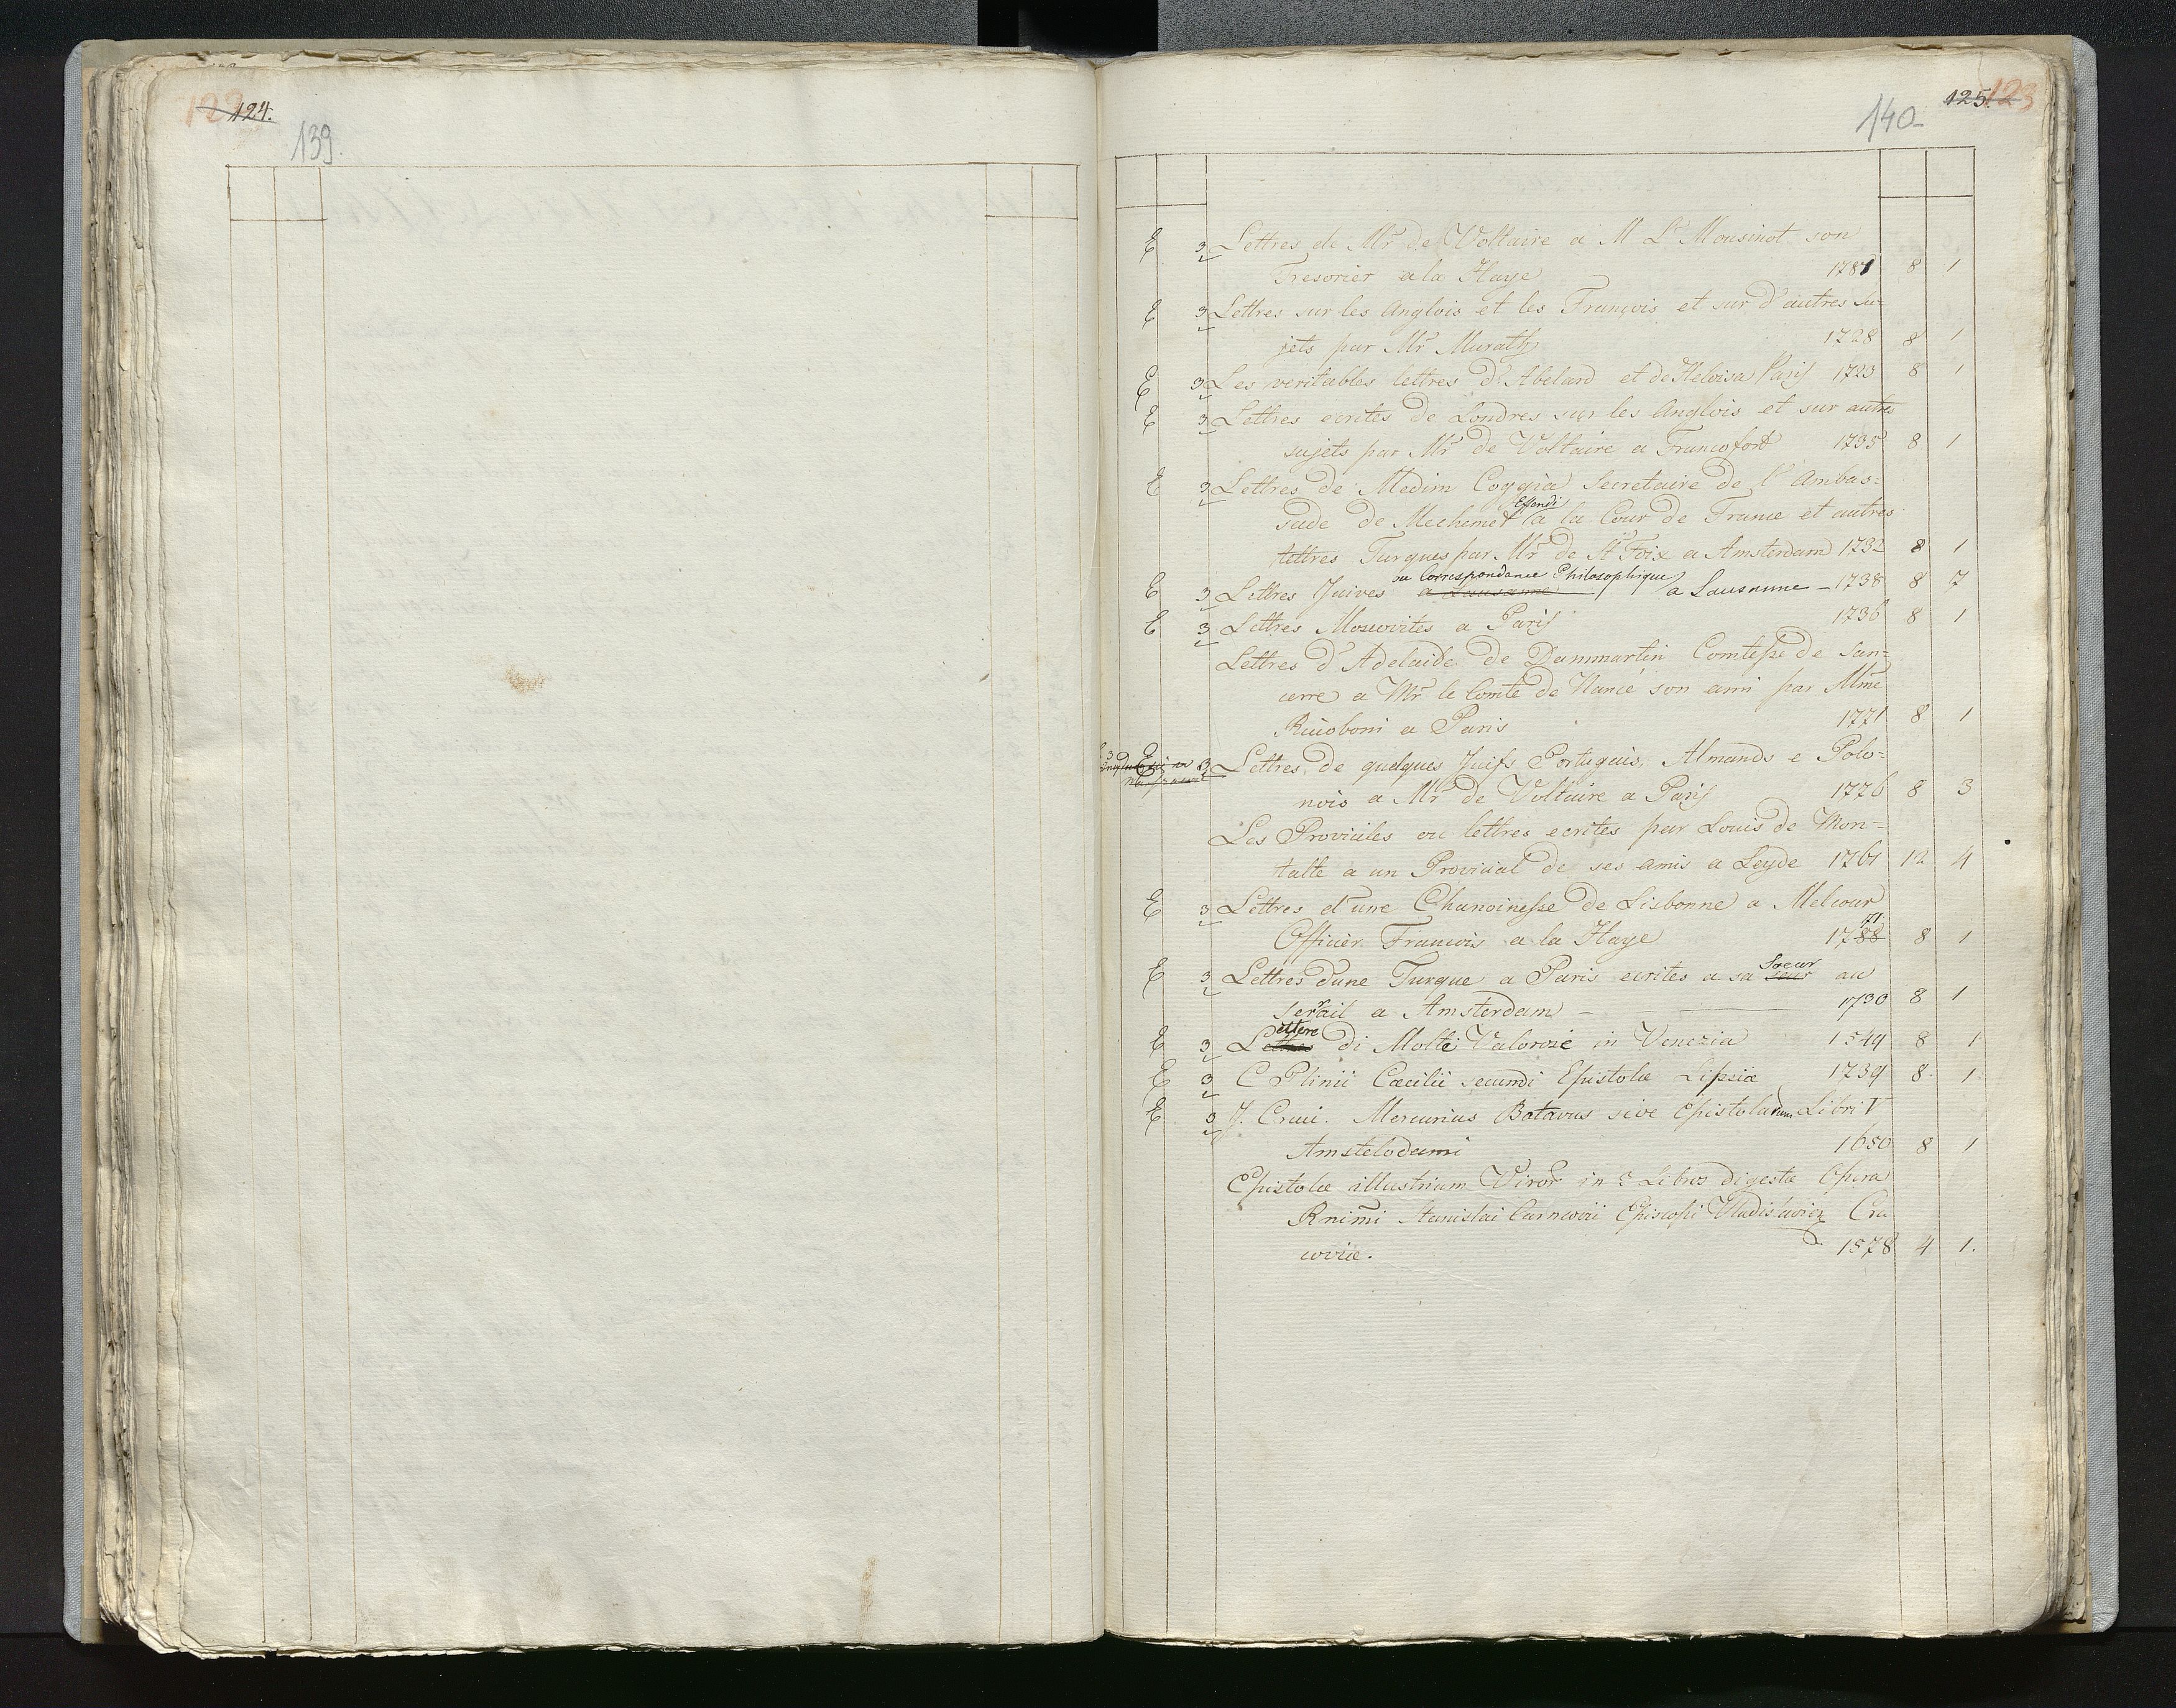 124.
139.
125. 123
140
E 3 Lettres de Mr de Voltaire a M L Mousinot son
Tresorier a la Haye 1781 8 1
E 3 Lettres sur les Anglois et les François et sur d'autres su=
jets par Mr Muralt 1728 8 1
E 3 Les veritables lettres d'Abelard et de Heloisa Paris 1723 8 1
E 3 Lettres ecrites de Londres sur les Anglois et sur autres
sujets par Mr de Voltaire a Francofort 1735 8 1
E 3 Lettres de Medim Coggia Secretaire de l'Ambas=
Effendi
sade de Mechemet a la Cour de France et autres
lettres Turques par Mr de St Foix a Amsterdam 1732 8 1
ou Correspondance Philosophique
E 3 Lettres Juives a Lausanne a Lausanne – 1738 8 7
E 3 Lettres Moscovites a Paris 1736 8 1
Lettres d'Adelaide de Dammartin Comtesse de San=
cerre a Mr le Comte de Nancé son ami par Mme
Riccoboni a Paris 1771 8 1
E 3 Lettres de quelques Juifs Portugais, Almands e Polo=
nois a Mr de Voltaire a Paris 1776 8 3
Les Proviciles ou lettres ecrites par Louis de Mon=
talte a un Provicial de ses amis a Leyde 1761 12 4
E 3 Lettres d'une Chanoinesse de Lisbonne a Melcour
71
Officier Francois a la Haye 1788 8 1
Soeur
E 3 Lettres d'une Turque a Paris ecrites a sa seur au
Serrail a Amsterdam – 1730 8 1
ettere
E 3 Lettres di Molte Valorose in Venezia 1549 8 1
E 3 C Plinii Cæcilii secundi Epistolæ Lipsiæ 1739 8 1
E 3 J. Crucii. Mercurius Batavus sive Epistolarum Libri V
Amstelodami 1650 8 1
Epistolæ illustrium Viror in 3 Libros digestæ Opera
Rnimi Stanislai Carncovii Episcopi Vladislavien Cra
coviæ. 1578 4 1.